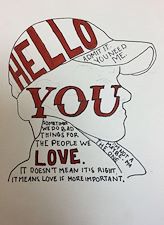 HELLO
ADMIT IT,
YOU NEED
ME.
YOU
SOMETIMES
WE DO BAD
THINGS FOR
THE PEOPLE WE
LOVE.
IT DOESN'T MEAN IT'S RIGHT,
IT MEANS LOVE IS MORE IMPORTANT.